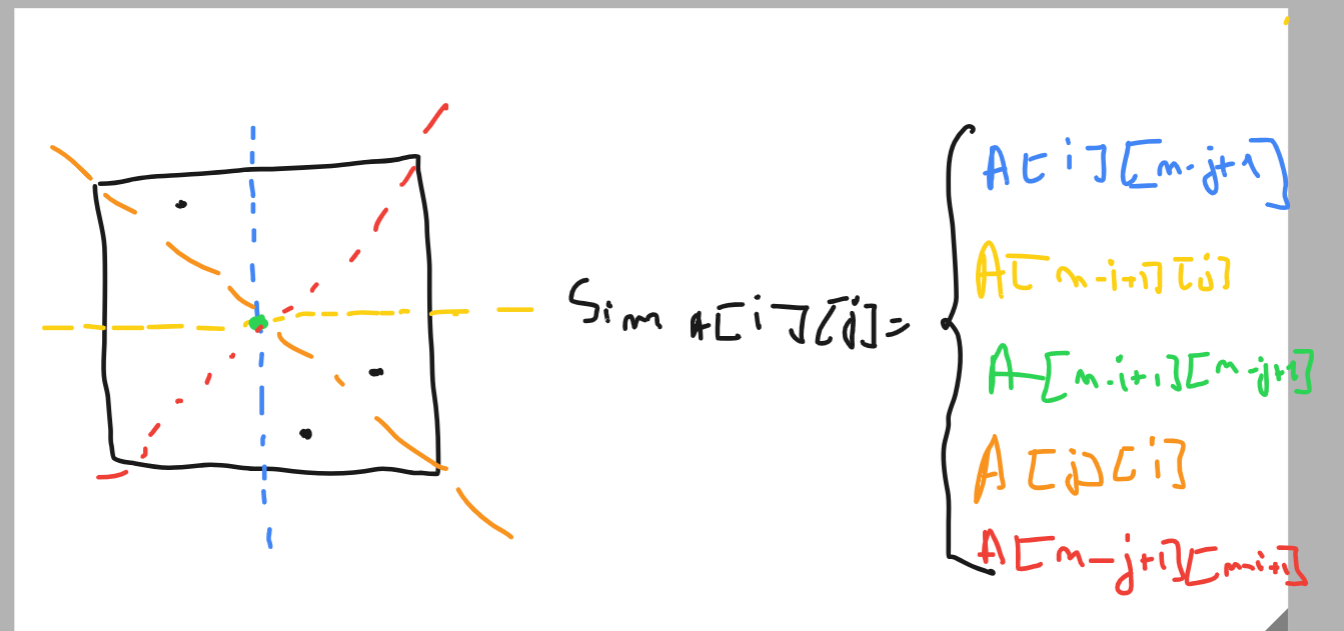 Sim A[i][j]=
A[i][n-j+1]
A[n-i+1][j]
A[n-i+1][n-j+1]
A[j][i]
A[n-j+1][n-i+1]